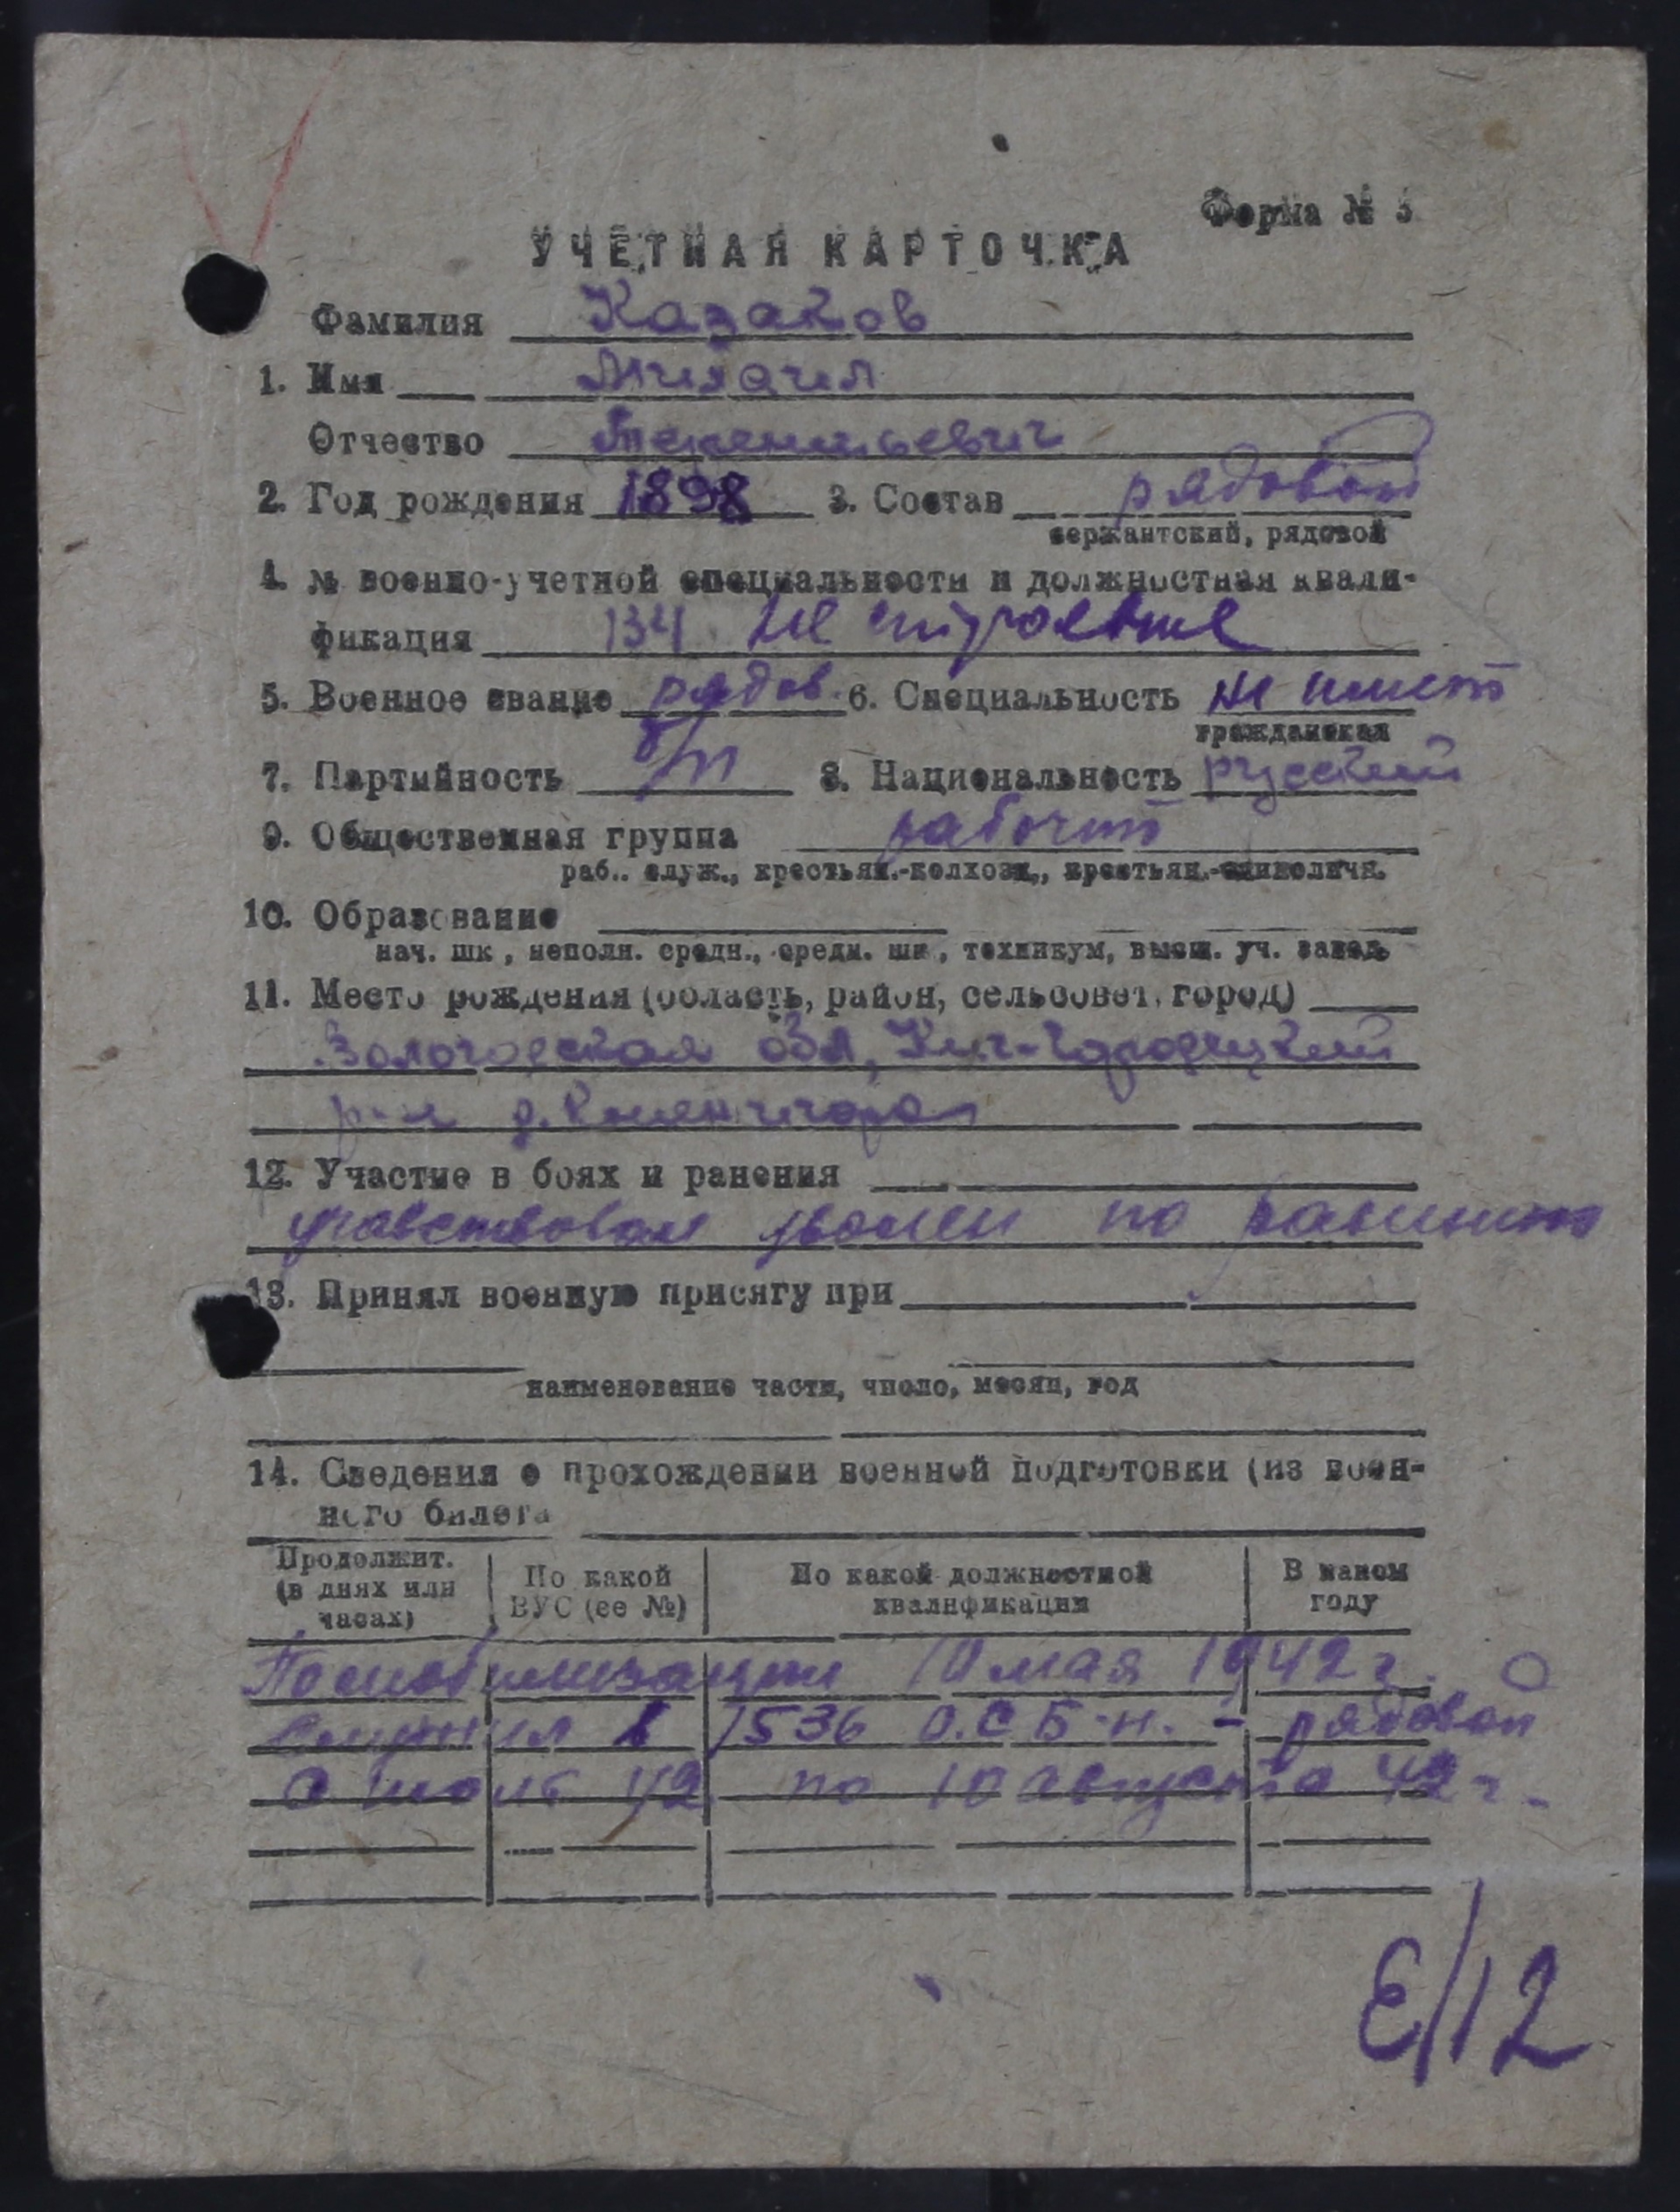 Форма № 3
УЧЕТНАЯ КАРТОЧКА
Фамилия Казаков
1. Имя Михаил
Отчество
2. Год рождения 1898 3. Состав рядовой
сержантский, рядовой
4. № военно-учетной специальности и должностная квали-
фикация 134 не строевые
5. Военное звание рядов. 6. Специальность не имеет
гражданская
7. Партийность б/п 8. Национальность русский
9. Общественная группа рабочий
раб.. служ., крестьян.-колхозн., крестьян.-единоличн.
10. Образование
нач. шк, неполн. средн., средн. шк, техникум, высш. уч. завед
11. Место рождения (область, район, сельсовет, город)
Вологодская обл, Кич-Городецкий
р-н д.
12. Участие в боях и ранения
участвовал уволен по ранению
13. Принял военную присягу при
наименование части, число, месяц, год
14. Сведения о прохождении военной подготовки (из воен-
ного билета
Продолжит. (в днях или часах) По какой ВУС (ее №) По какой должностной квалификации В каком году
По мобилизации 10 мая 1942 г.
служил в 1536 О.С Б-н. - рядовой
с 42 по 10 августа 42 г.
Е/12